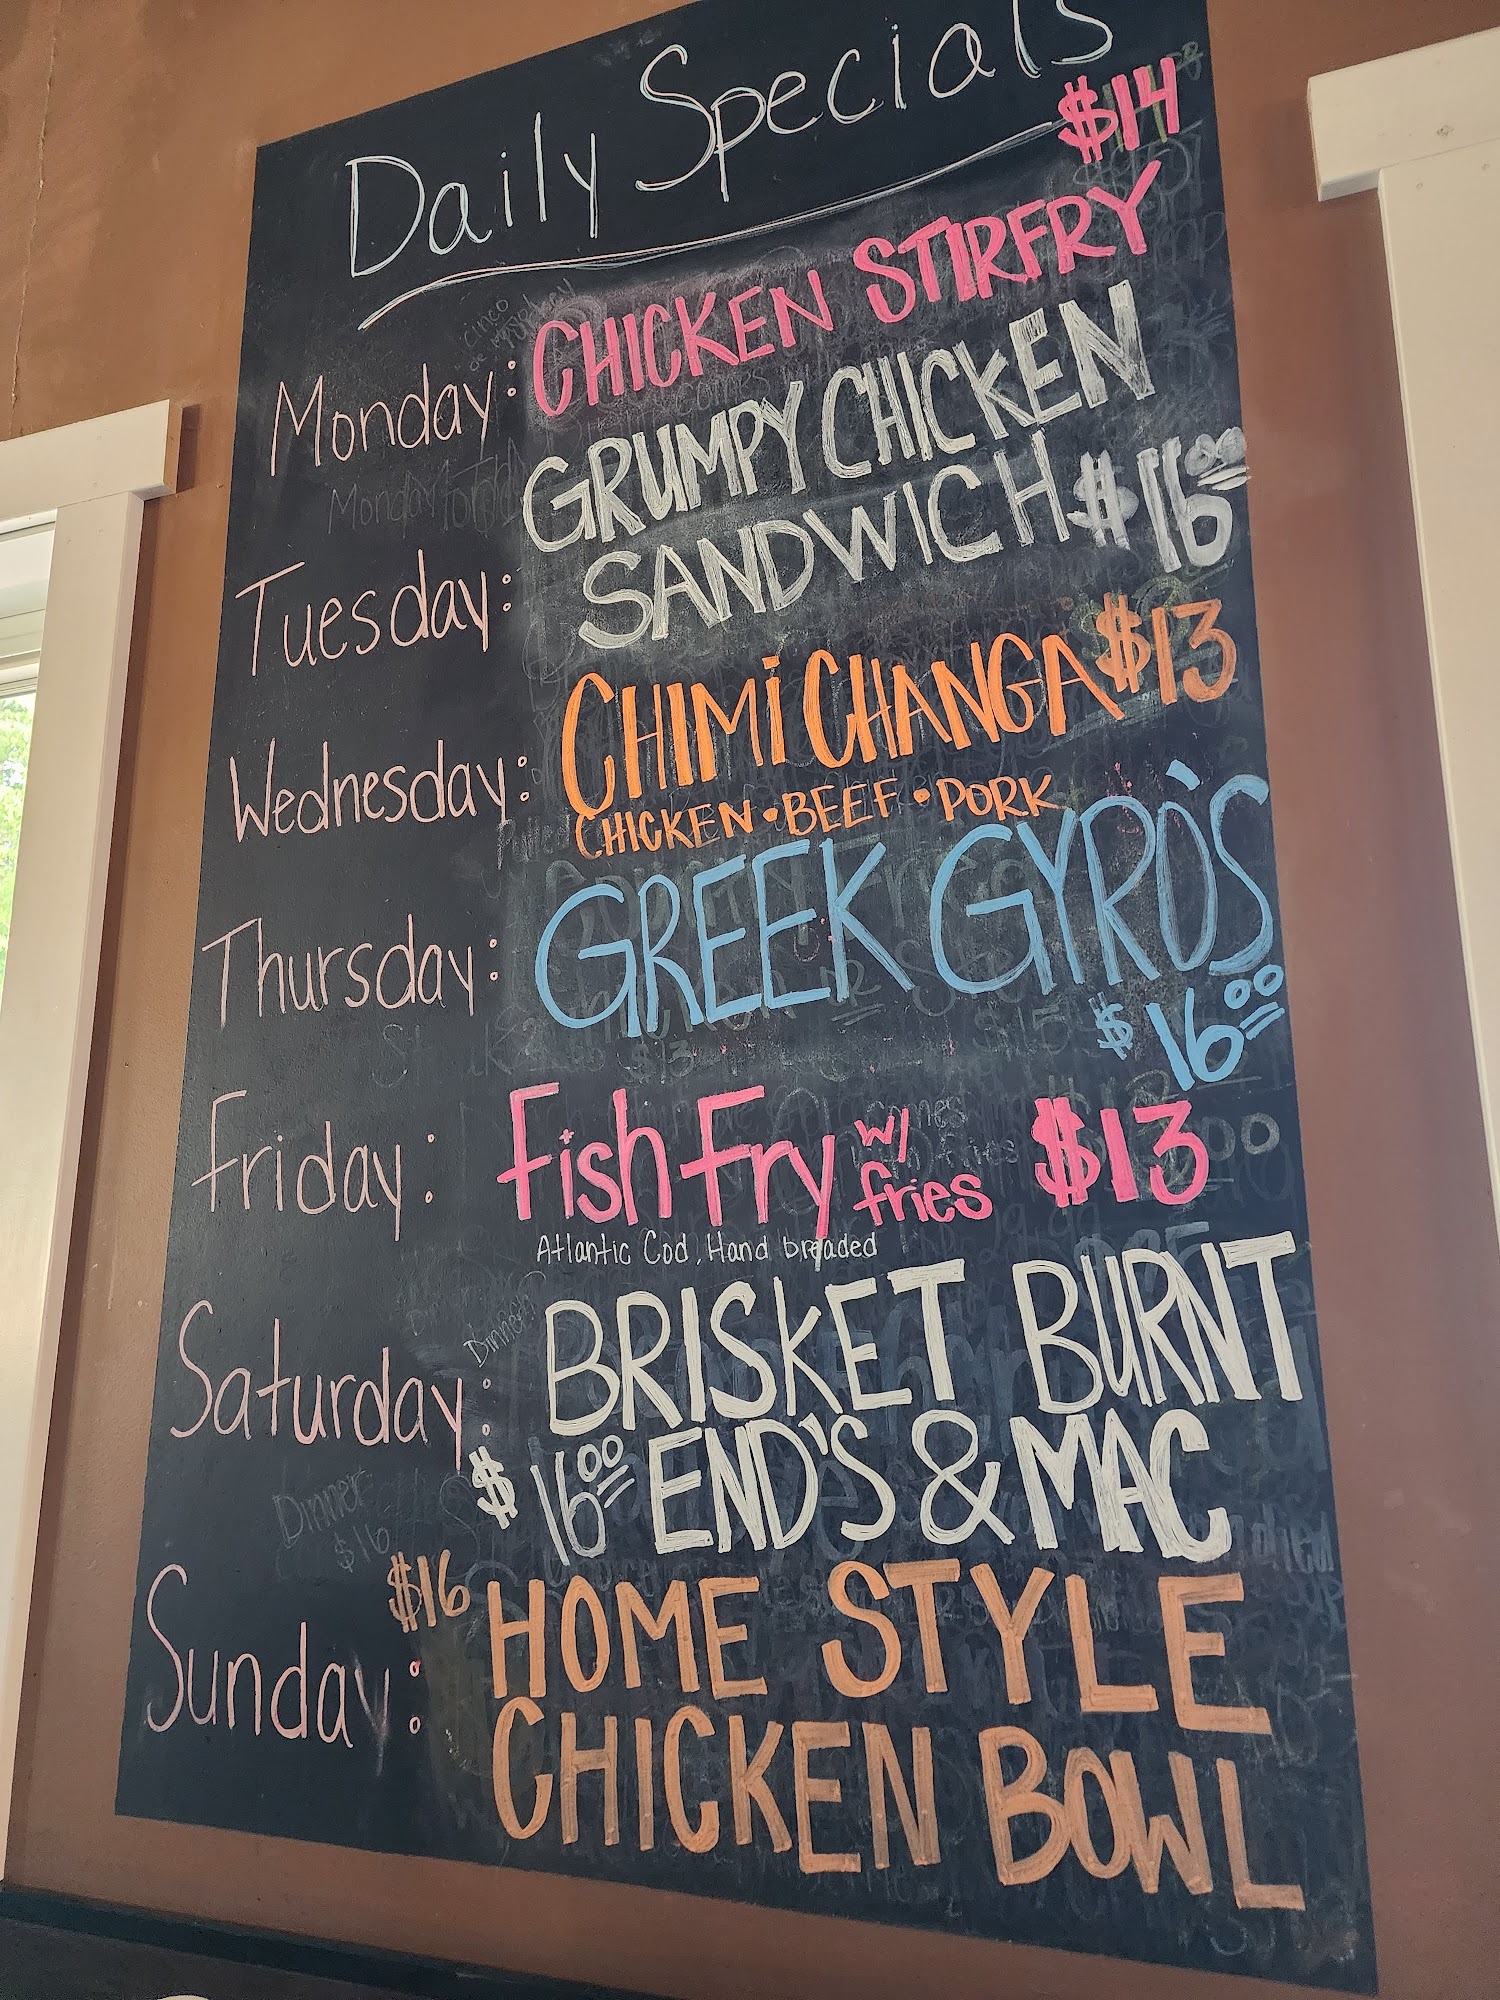 Daily Specials
$14
Monday: CHICKEN STIRFRY
GRUMPY CHICKEN
Tuesday: SANDWICH $16.00
CHIMICHANGA $13
Wednesday: CHICKEN • BEEF • PORK
Thursday: GREEK GYRO'S
$16.00
Friday: Fish Fry w/ fries $13
Atlantic Cod, Hand breaded
Dinner
Saturday: BRISKET BURNT
$16.00 END'S & MAC
Dinner
$16
$16 HOME STYLE
Sunday: CHICKEN BOWL